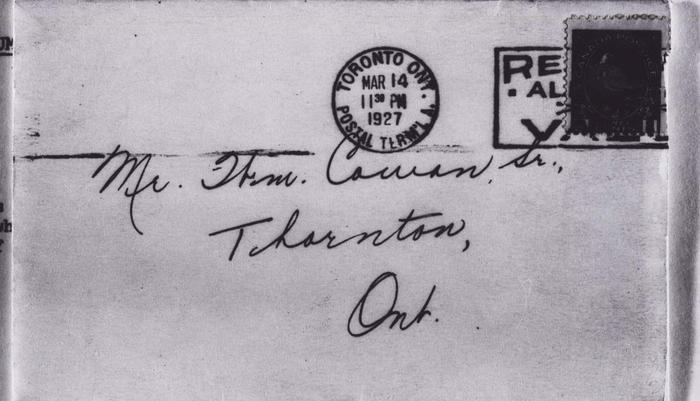 TORONTO ONT.
MAR 14
11 30 PM
1927
POSTAL TERM'L A.
RE
AL
Mr. Wm. Cowan, Sr.,
Thornton,
Ont.